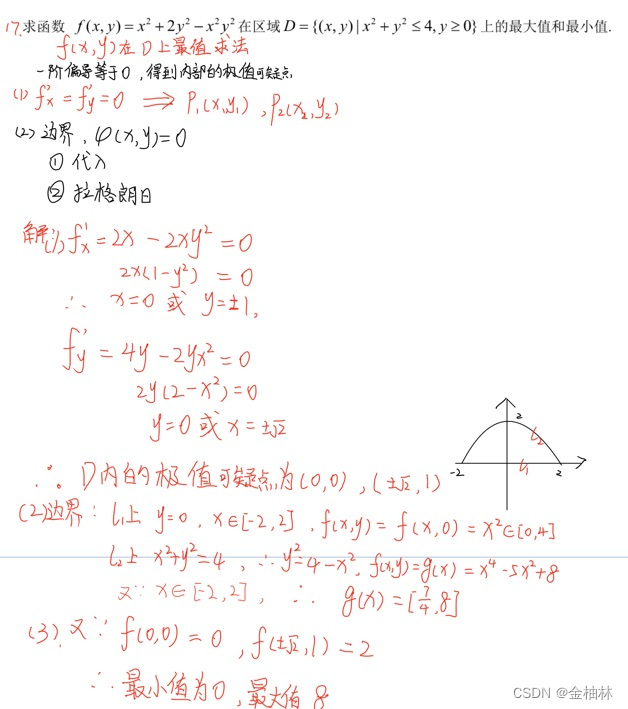 17.求函数 f(x,y)=x²+2y²−x²y²在区域D={(x,y)|x²+y²≤4,y≥0}上的最大值和最小值.
f(x,y)在D上最值求法
一阶偏导等于0,得到内部的极值可疑点
(1) f'x=f'y=0 ⟹ P₁(x,y₁),P₂(x₂,y₂)
(2)边界,φ(x,y)=0
① 代入
② 拉格朗日
解:(1)f'x=2x−2xy²=0
2x(1−y²)=0
∴ x=0 或 y=±1,
f'y=4y−2yx²=0
2y(2−x²)=0
y=0 或 x=±√2
2
l₂
-2 l₁ 2
∴ D内的极值可疑点为(0,0),(±√2,1)
(2)边界:l₁上 y=0,x∈[-2,2],f(x,y)=f(x,0)=x²∈[0,4]
l₂上 x²+y²=4,∴y²=4−x²,f(x,y)=g(x)=x⁴-5x²+8
又∵x∈[-2,2],∴ g(x)=[7/4,8]
(3)又∵f(0,0)=0,f(±√2,1)=2
∴最小值为0,最大值8
CSDN @金柚林